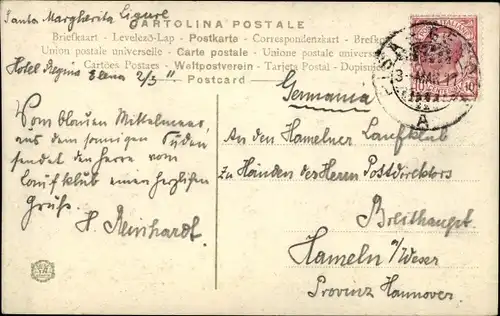 Santa Margherita Ligure
CARTOLINA POSTALE
Briefkaart - Levelező-Lap - Postkarte - Correspondenzkart - Brefkort
Union postale universelle - Carte postale - Unione postale universale
Cartões Postaes - Weltpostverein - Tarjeta Postal - Dopisnice
Postcard
Hotel Regina Elena 2/3 11
Germania
10
10
A
Vom blauen Mittelmeer,
aus dem sonnigen Süden
sendet den Herren vom
Laufklub einen herzlichen
Gruß.
H. Reinhardt.
An den Hamelner Laufklub
zu Händen des Herrn Postdirektors
Breithaupt
Hameln a/Weser
Provinz Hannover.